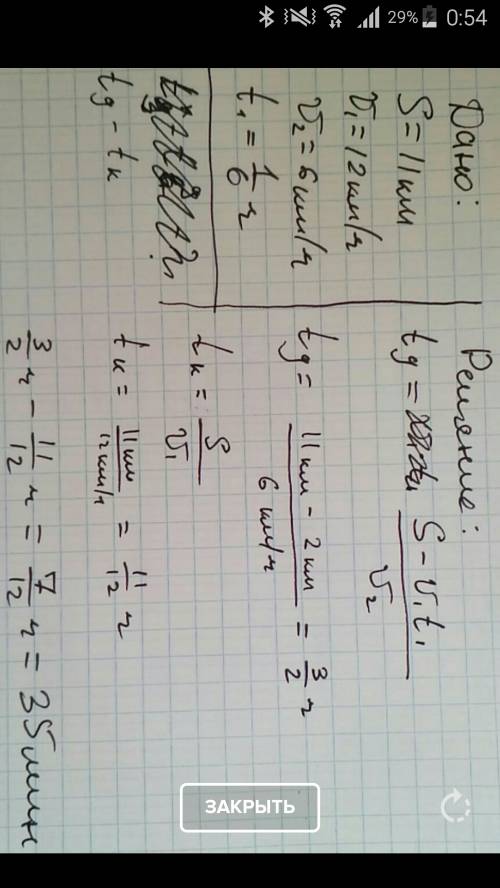 29% 0:54
Дано:
S = 11 км
v₁ = 12 км/ч
v₂ = 6 км/ч
t₁ = 1/6 ч
tg - tк
Решение:
tg = S - v₁t₁ / v₂
tg = 11 км - 2 км / 6 км/ч = 3/2 ч
tк = S / v₁
tк = 11 км / 12 км/ч = 11/12 ч
3/2 ч - 11/12 ч = 7/12 ч = 35 мин
ЗАКРЫТЬ